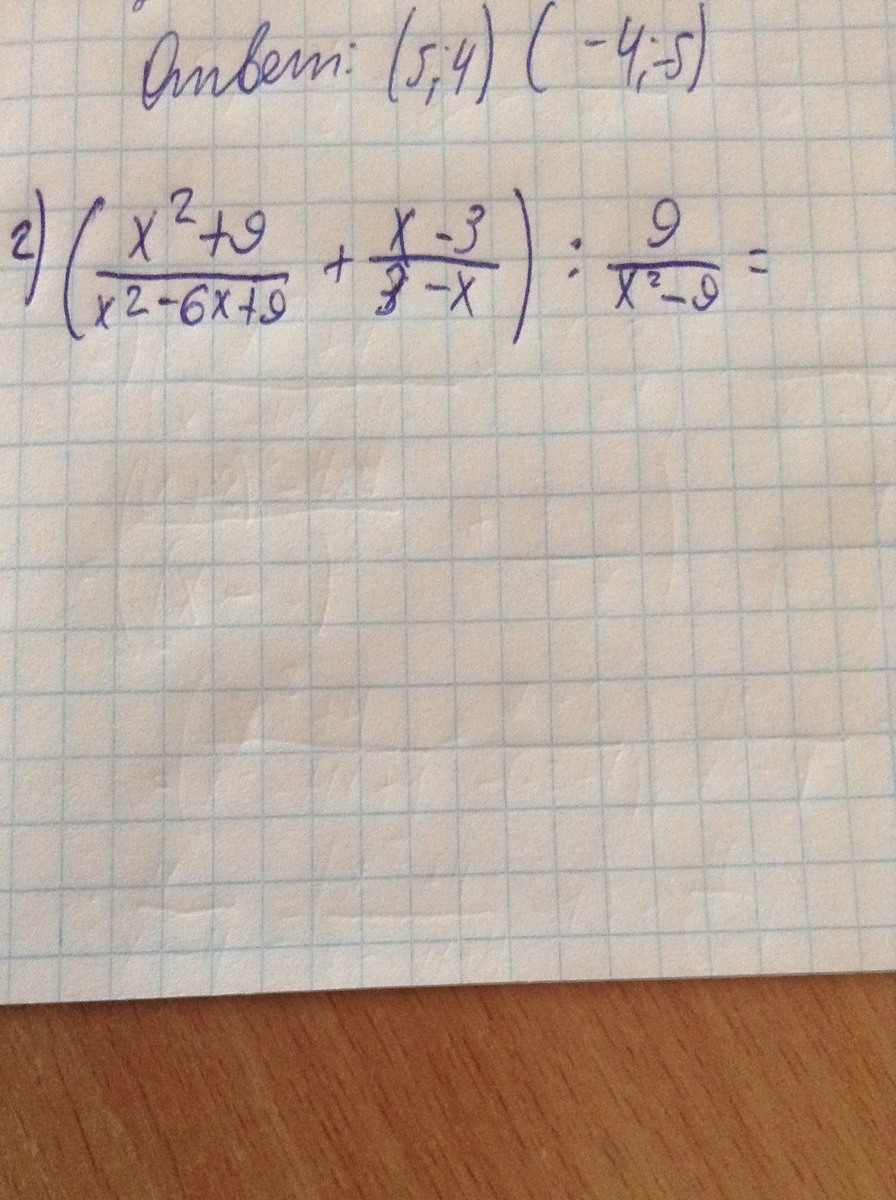 Ответ: (5;4) (-4;-5)
2) (x²+9/x²-6x+9 + x-3/3-x) : 9/x²-9 =